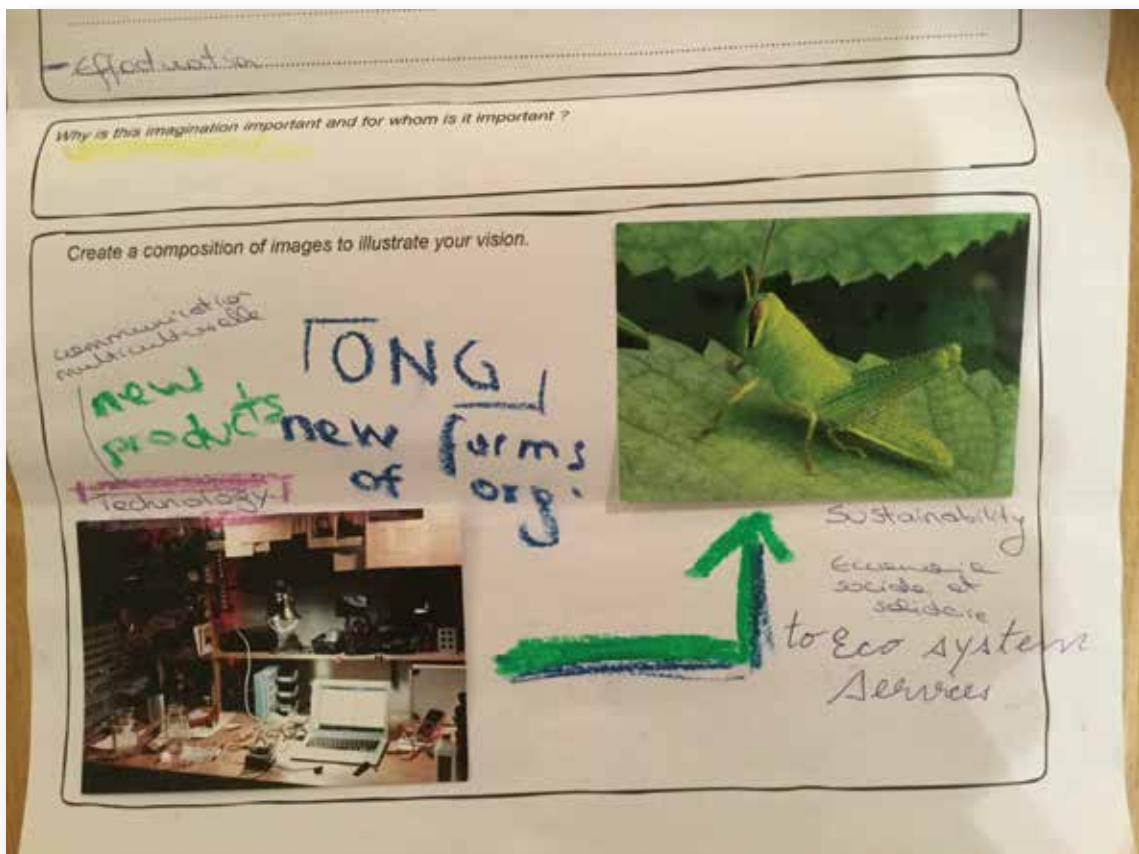 - Effectuation
Why is this imagination important and for whom is it important ?
Create a composition of images to illustrate your vision.
communication
multiculturelle
new
products
Technology
ONG
new forms
of org.
Sustainability
Economie
sociale et
solidaire
to Eco system
Services